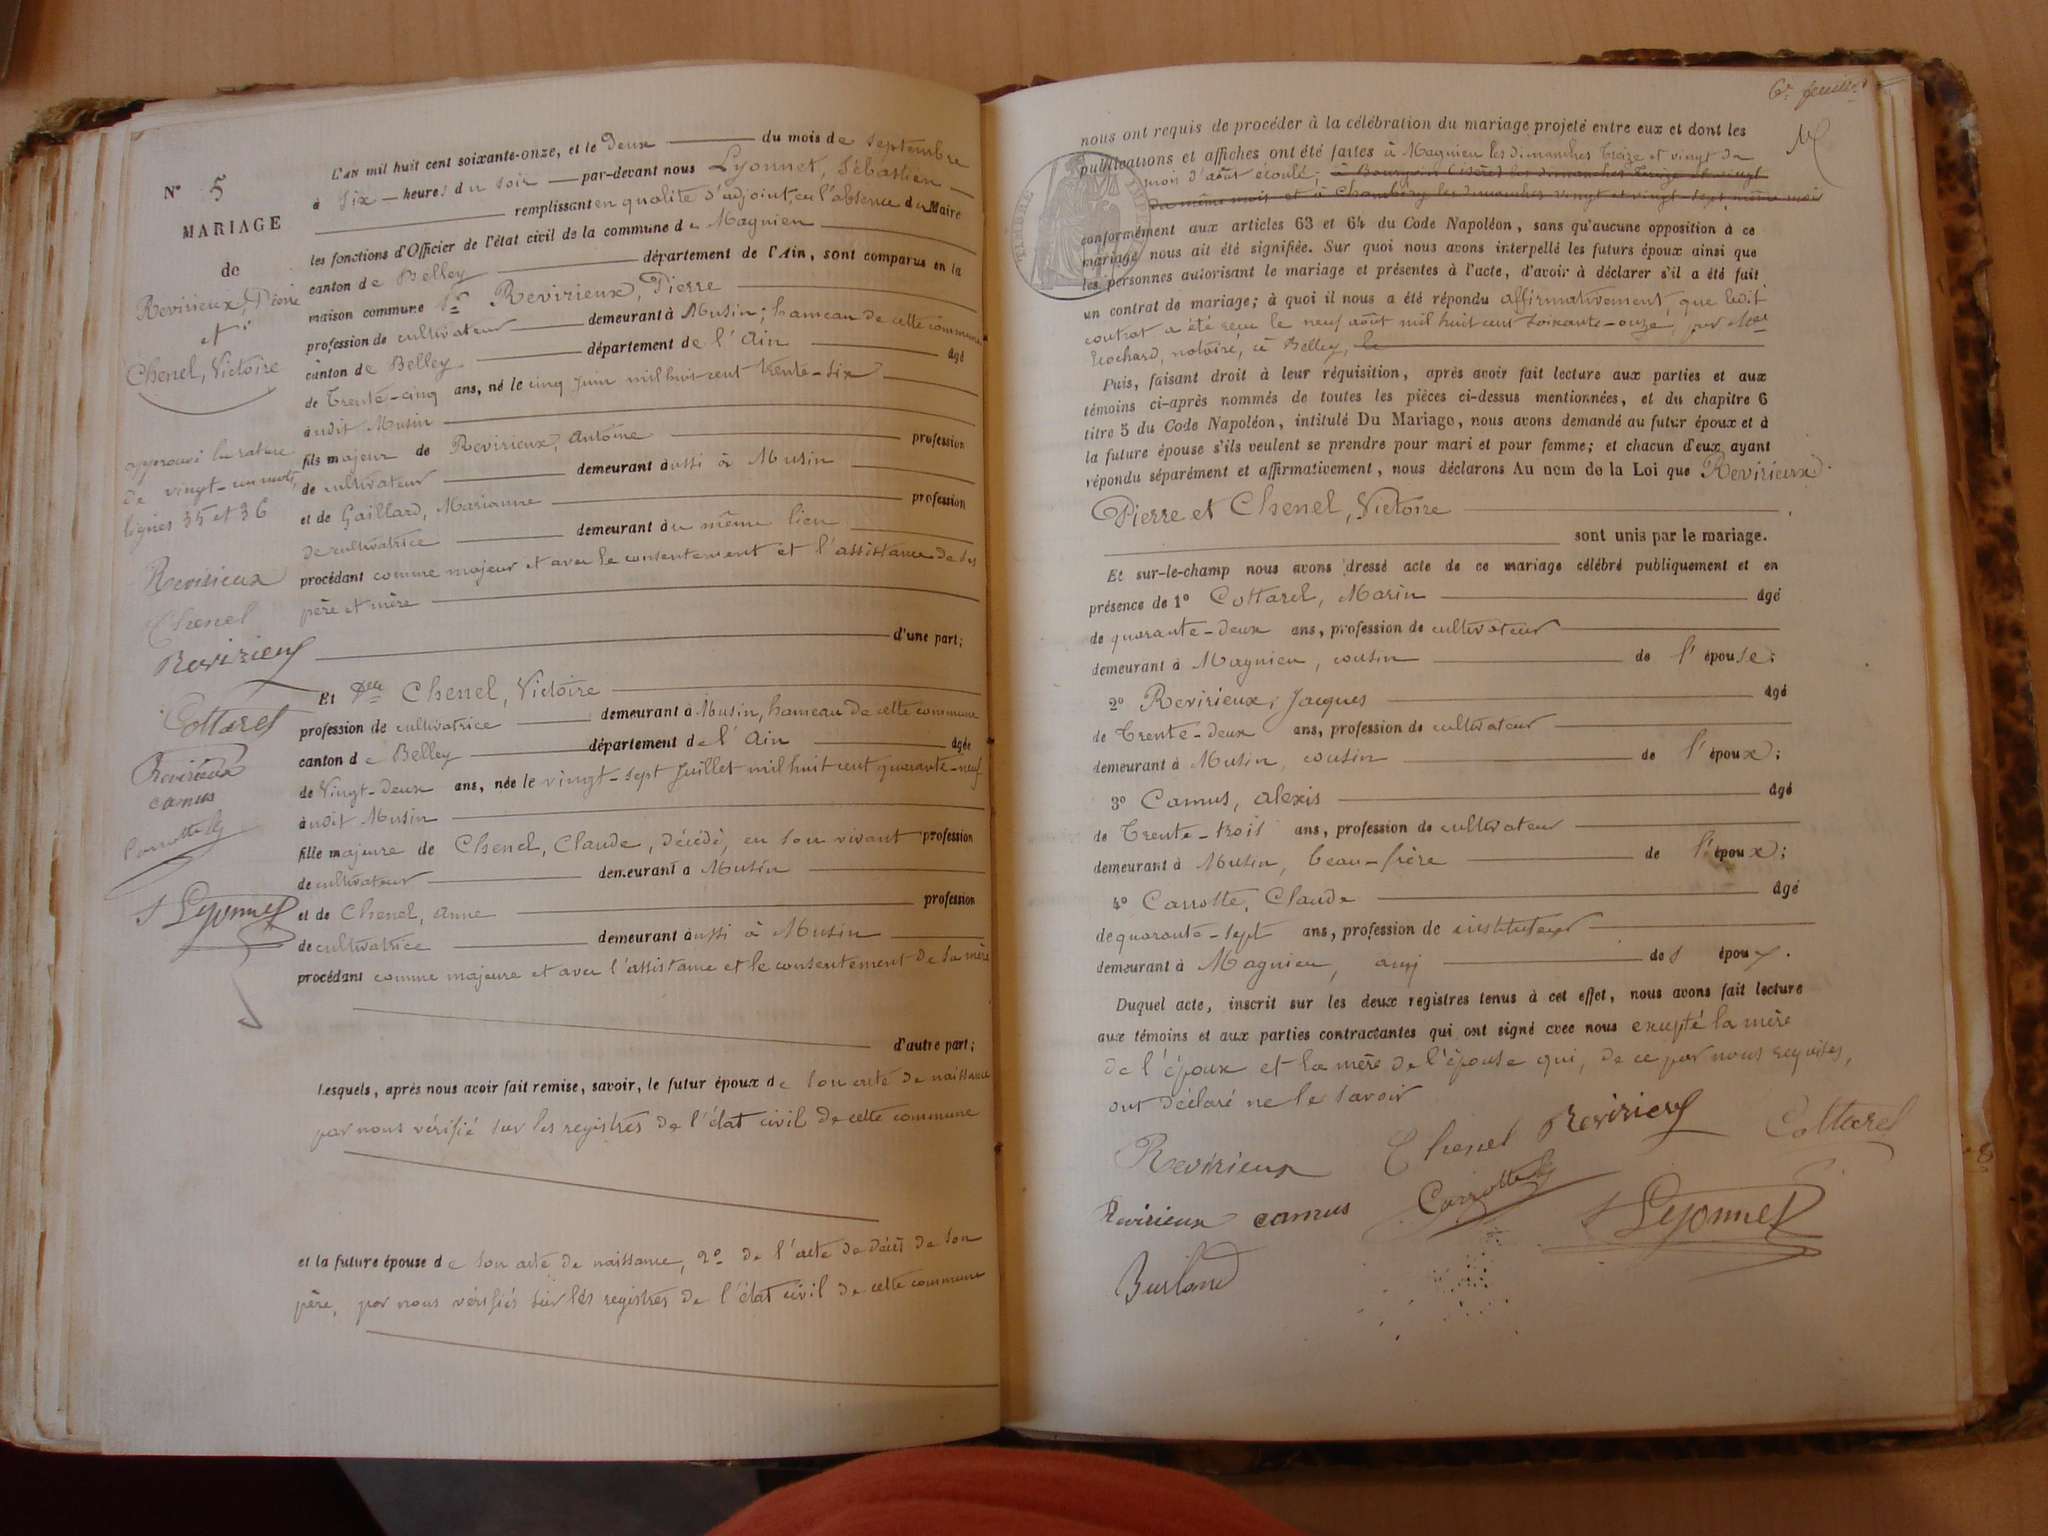 N° 5
MARIAGE
de
Revirieux, Pierre
et
Chenel, Victoire
approuvé la rature
de vingt-un mots,
lignes 35 et 36
Revirieux
Chenel
Revirieux
Cottarel
Revirieux
camus
Carrotte
S Lyonnet
L'an mil huit cent soixante-onze, et le Deux du mois de Septembre
à Six heures du soir par-devant nous Lyonnet, Sébastien
remplissant en qualité d'adjoint, en l'absence du Maire
les fonctions d'Officier de l'état civil de la commune de Magnieu
canton de Belley département de l'Ain, sont comparus en la
maison commune Sr Revirieux, Pierre
profession de cultivateur demeurant à Musin; hameau de cette commune
canton de Belley département de l'Ain âgé
de Trente-cinq ans, né le cinq juin mil huit cent trente-six
à udit Musin
fils majeur de Revirieux, Antoine profession
de cultivateur demeurant aussi à Musin
et de Gaillard, Marianne profession
de cultivatrice demeurant au même lieu
procédant comme majeur et avec le consentement et l'assistance de ses
père et mère
d'une part;
Et Delle Chenel, Victoire
profession de cultivatrice demeurant à Musin, hameau de cette commune
canton de Belley département de l'Ain âgée
de Vingt-deux ans, née le vingt-sept Juillet mil huit cent quarante-neuf
audit Musin
fille majeure de Chenel, Claude, décédé, en son vivant profession
de cultivateur demeurant à Musin
et de Chenel, Anne profession
de cultivatrice demeurant aussi à Musin
procédant comme majeure et avec l'assistance et le consentement de sa mère
d'autre part;
Lesquels, après nous avoir fait remise, savoir, le futur époux de son acte de naissance
par nous vérifié sur les registres de l'état civil de cette commune
et la future épouse de son acte de naissance, 2° de l'acte de décès de son
père, par nous vérifiés sur les registres de l'état civil de cette commune
6e feuillet
nous ont requis de procéder à la célébration du mariage projeté entre eux et dont les
publications et affiches ont été faites à Magnieu les dimanches treize et vingt du
mois d'août écoulé; à Bourgoin (Isère) les dimanches treize et vingt
du même mois et à Chambéry les dimanches vingt et vingt-sept même mois
conformément aux articles 63 et 64 du Code Napoléon, sans qu'aucune opposition à ce
mariage nous ait été signifiée. Sur quoi nous avons interpellé les futurs époux ainsi que
les personnes autorisant le mariage et présentes à l'acte, d'avoir à déclarer s'il a été fait
un contrat de mariage; à quoi il nous a été répondu affirmativement, que ledit
contrat a été reçu le neuf août mil huit cent soixante-onze, par Me
Rochard, notaire, à Belley, le
Puis, faisant droit à leur réquisition, après avoir fait lecture aux parties et aux
témoins ci-après nommés de toutes les pièces ci-dessus mentionnées, et du chapitre 6
titre 5 du Code Napoléon, intitulé Du Mariage, nous avons demandé au futur époux et à
la future épouse s'ils veulent se prendre pour mari et pour femme; et chacun d'eux ayant
répondu séparément et affirmativement, nous déclarons Au nom de la Loi que Revirieux
Pierre et Chenel, Victoire
sont unis par le mariage.
Et sur-le-champ nous avons dressé acte de ce mariage célébré publiquement et en
présence de 1° Cottarel, Marin âgé
de quarante-deux ans, profession de cultivateur
demeurant à Magnieu, cousin de l'épouse;
2° Revirieux, Jacques âgé
de Trente-deux ans, profession de cultivateur
demeurant à Musin, cousin de l'époux;
3° Camus, Alexis âgé
de Trente-trois ans, profession de cultivateur
demeurant à Musin, beau-frère de l'époux;
4° Carrotte, Claude âgé
de quarante-sept ans, profession de instituteur
demeurant à Magnieu, ami des époux.
Duquel acte, inscrit sur les deux registres tenus à cet effet, nous avons fait lecture
aux témoins et aux parties contractantes qui ont signé avec nous excepté la mère
de l'époux et la mère de l'épouse qui, de ce par nous requises,
ont déclaré ne le savoir
Revirieux Chenel Revirieux Cottarel
Revirieux camus Carrotte S Lyonnet
Burland